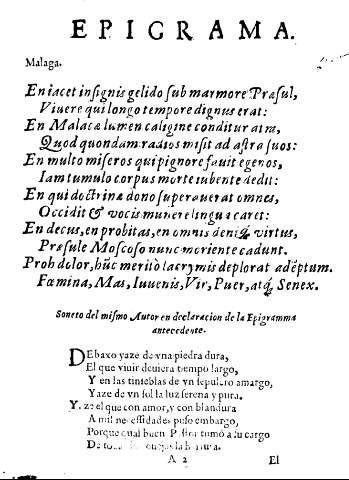 EPIGRAMA.
Malaga.
En iacet insignis gelido sub marmore Præsul,
Viuere qui longo tempore dignus erat:
En Malacæ lumen caligine conditur atra,
Quod quondam radios misit ad astra suos:
En multo miseros qui pignore fauit egenos,
Iam tumulo corpus morte iubente dedit:
En qui doctrinæ dono superauerat omnes,
Occidit & vocis munere lingua caret:
En decus, en probitas, en omnis deniq; virtus,
Præsule Moscoso nunc moriente cadunt.
Proh dolor, hũc meritò lacrymis deplorat adẽptum.
Fœmina, Mas, Iuuenis, Vir, Puer, atq; Senex.
Soneto del mismo Autor en declaracion de la Epigramma
antecedente.
DEbaxo yaze de vna piedra dura,
El que viuir deuiera tiempo largo,
Y en las tinieblas de vn sepulcro amargo,
Yaze de vn sol la luz serena y pura.
Yaze el que con amor, y con blandura
A mil necessidades puso embargo,
Porque qual buen Pastor tomó a su cargo
De
A 2
El